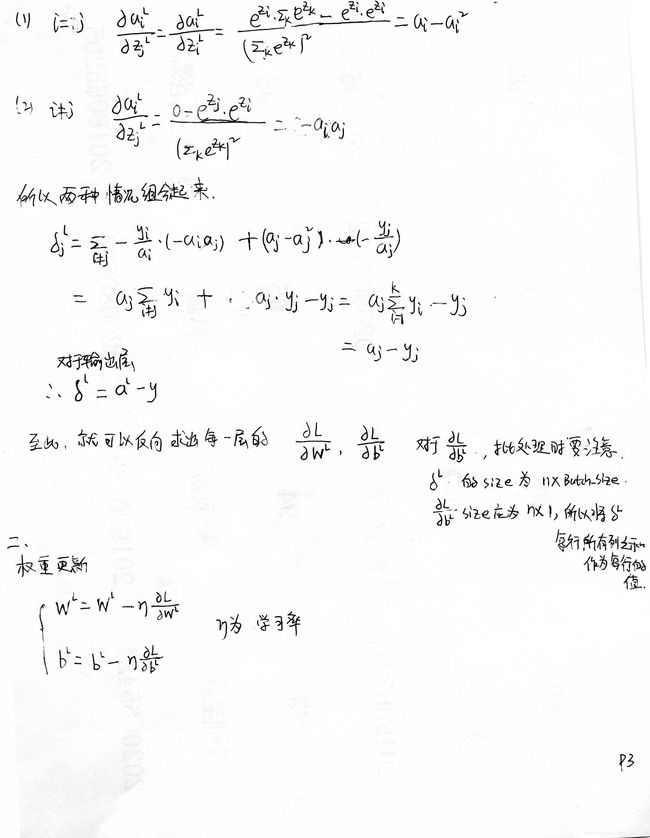 (1) i=j ∂aᵢᴸ/∂zⱼᴸ = ∂aᵢᴸ/∂zᵢᴸ = (e^{zᵢ}·Σₖe^{zₖ} − e^{zᵢ}·e^{zᵢ})/(Σₖe^{zₖ})² = aᵢ−aᵢ²
(2) i≠j ∂aᵢᴸ/∂zⱼᴸ = (0−e^{zⱼ}·e^{zᵢ})/(Σₖe^{zₖ})² = −aᵢaⱼ
所以两种情况组合起来.
δⱼᴸ = Σ_{i≠j} − yᵢ/aᵢ·(−aᵢaⱼ) + (aⱼ−aⱼ²)·(−yⱼ/aⱼ)
= aⱼ Σ_{i≠j} yᵢ + aⱼ·yⱼ−yⱼ = aⱼ Σ_{i=1}^{k} yᵢ −yⱼ
= aⱼ−yⱼ
对于输出层
∴ δᴸ = aᴸ−y
至此, 就可以反向求出每一层的 ∂L/∂Wᴸ, ∂L/∂bᴸ 对于 ∂L/∂bᴸ, 批处理时要注意.
δᴸ 的size为 n×Batch-size.
∂L/∂bᴸ size应为 n×1, 所以将δᴸ
每行所有列之和
作为每行的
值.
二、
权重更新
Wᴸ = Wᴸ − η ∂L/∂Wᴸ
η为 学习率
bᴸ = bᴸ − η ∂L/∂bᴸ
P3